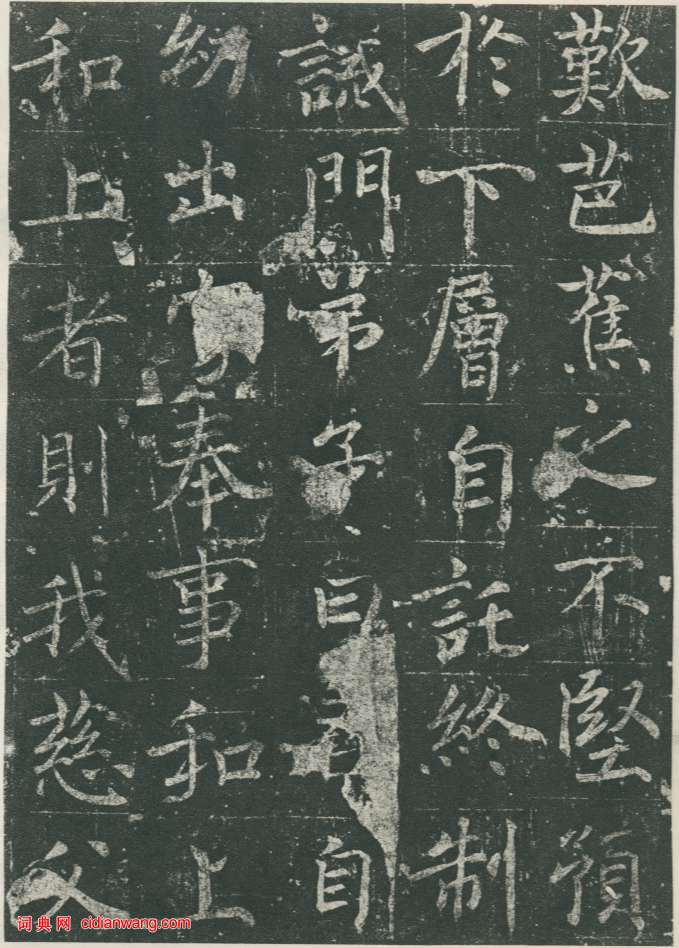 歎芭蕉之不堅預
於下層自託終制
誡門弟子曰自
幼出家奉事和上
和上者則我慈父
词典网 cidianwang.com